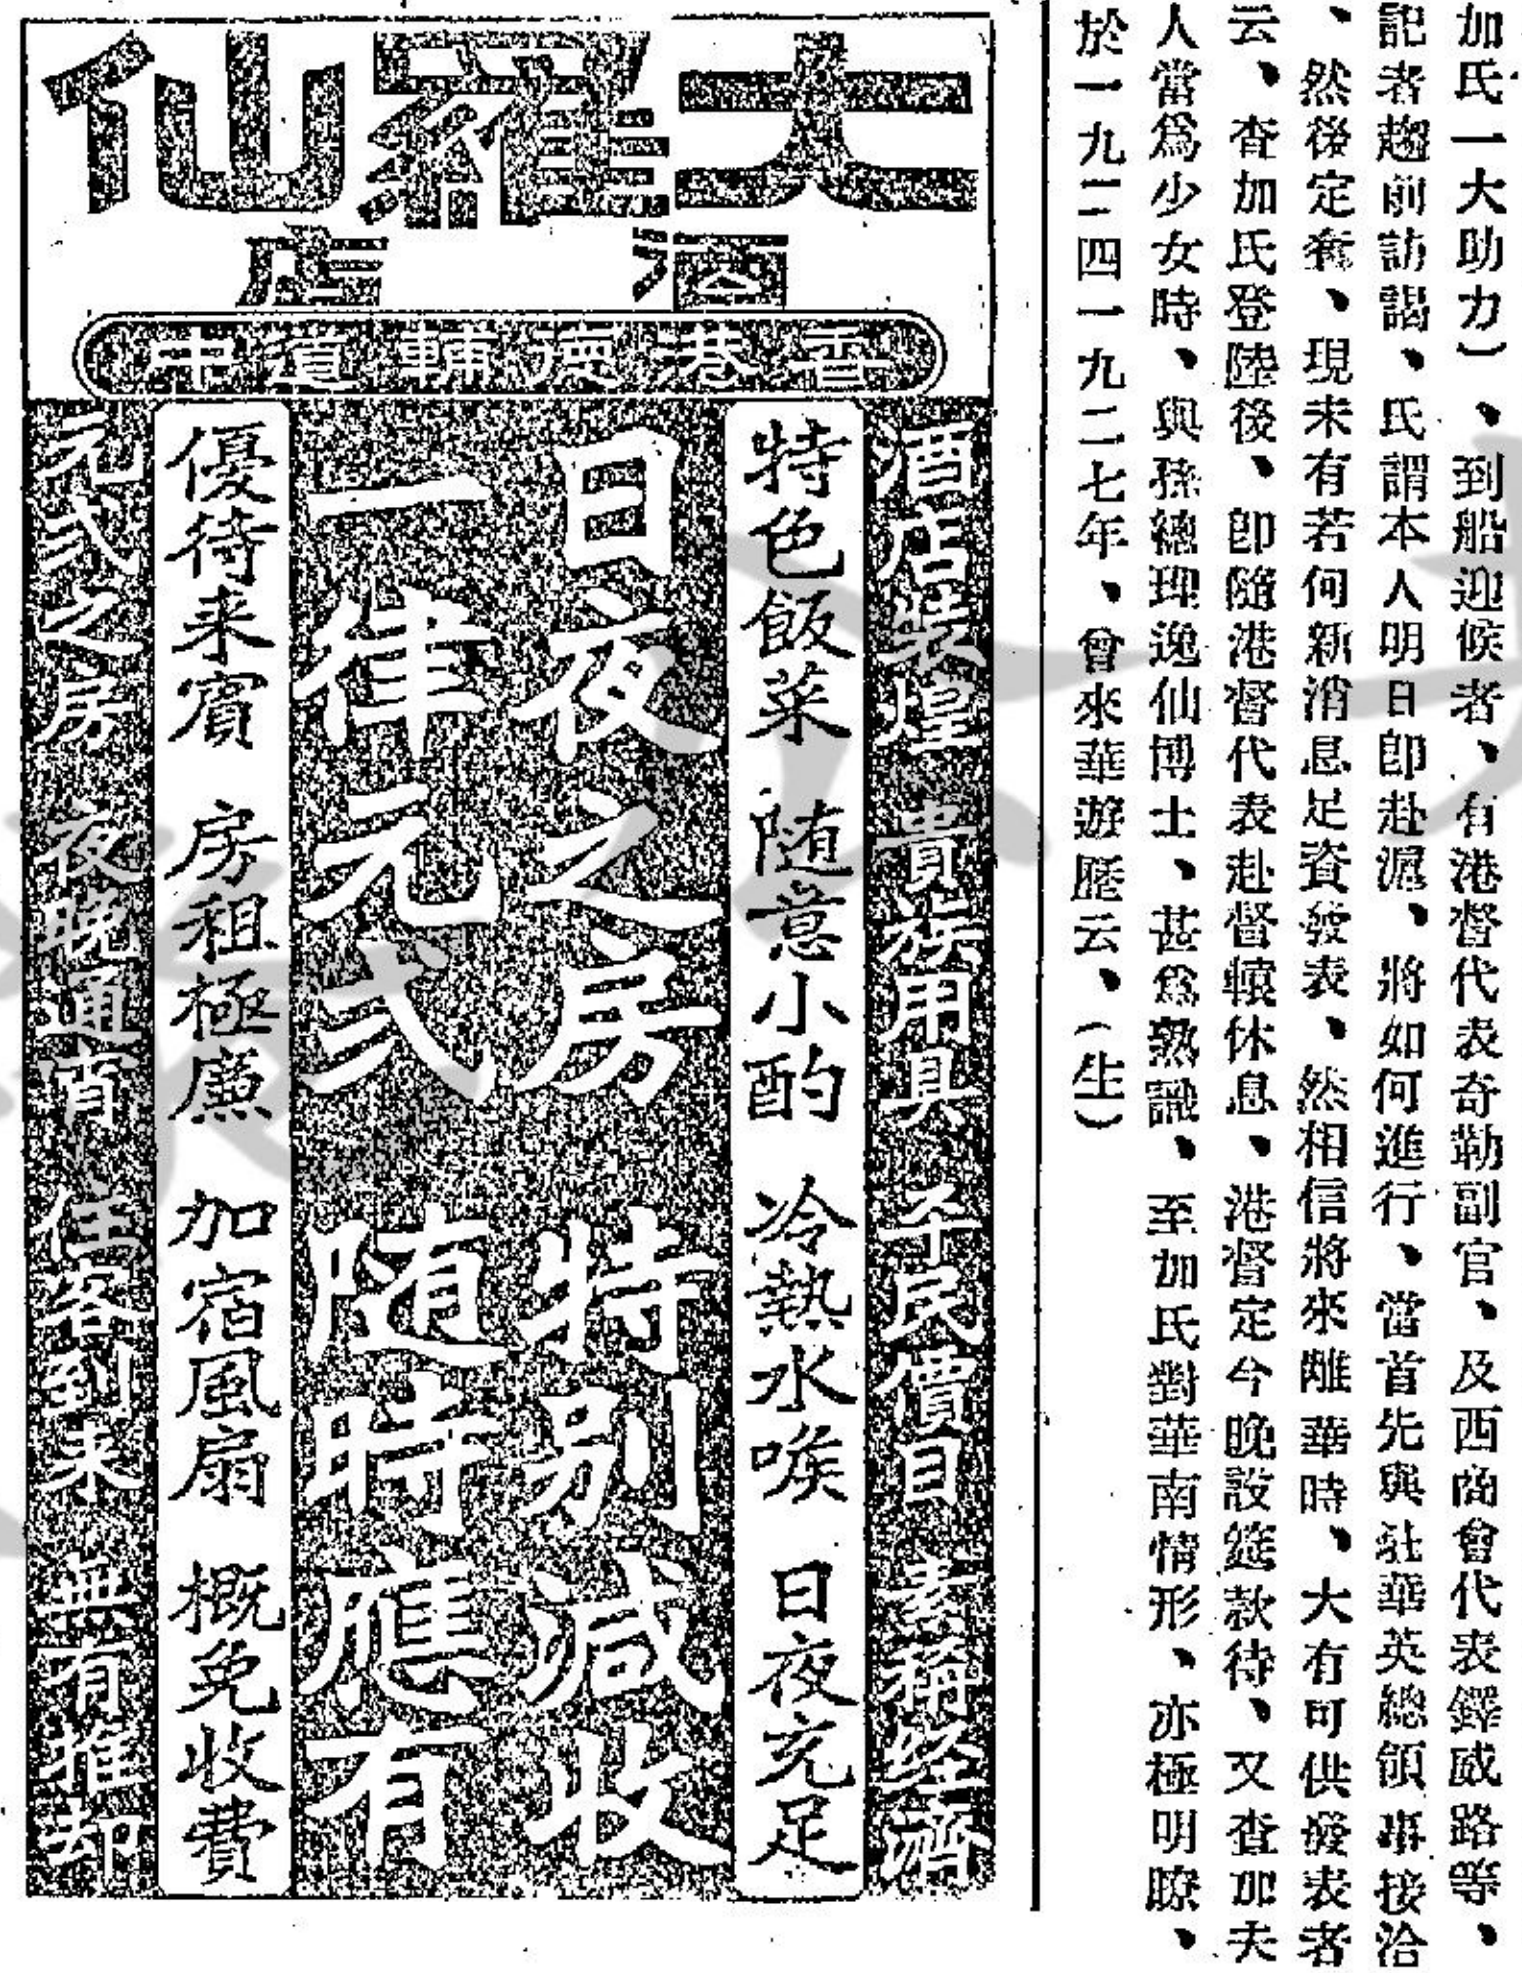 加氏一大助力）、到船迎候者、有港督代表奇勒副官、及西商會代表鐸威路等、
記者趨前訪謁、氏謂本人明日即赴滬、將如何進行、當首先與駐華英總領事接洽
、然後定奪、現未有若何新消息足資發表、然相信將來離華時、大有可供發表者
云、查加氏登陸後、即隨港督代表赴督轅休息、港督定今晚設筵款待、又查加夫
人當爲少女時、與孫總理逸仙博士、甚爲熟識、至加氏對華南情形、亦極明瞭、
於一九二四一九二七年、曾來華遊歷云、（生）
大羅仙
酒店
香港德輔道中
酒店裝煌 貴族用具 平民價目 素稱經濟
特色飯菜 随意小酌 冷熱水喉 日夜充足
日夜之房 特别減收
一律元弍 随時應有
優待来賓 房租極廉 加宿風扇 概免收費
元弍之房 夜晚通宵 住客到来 無有推却